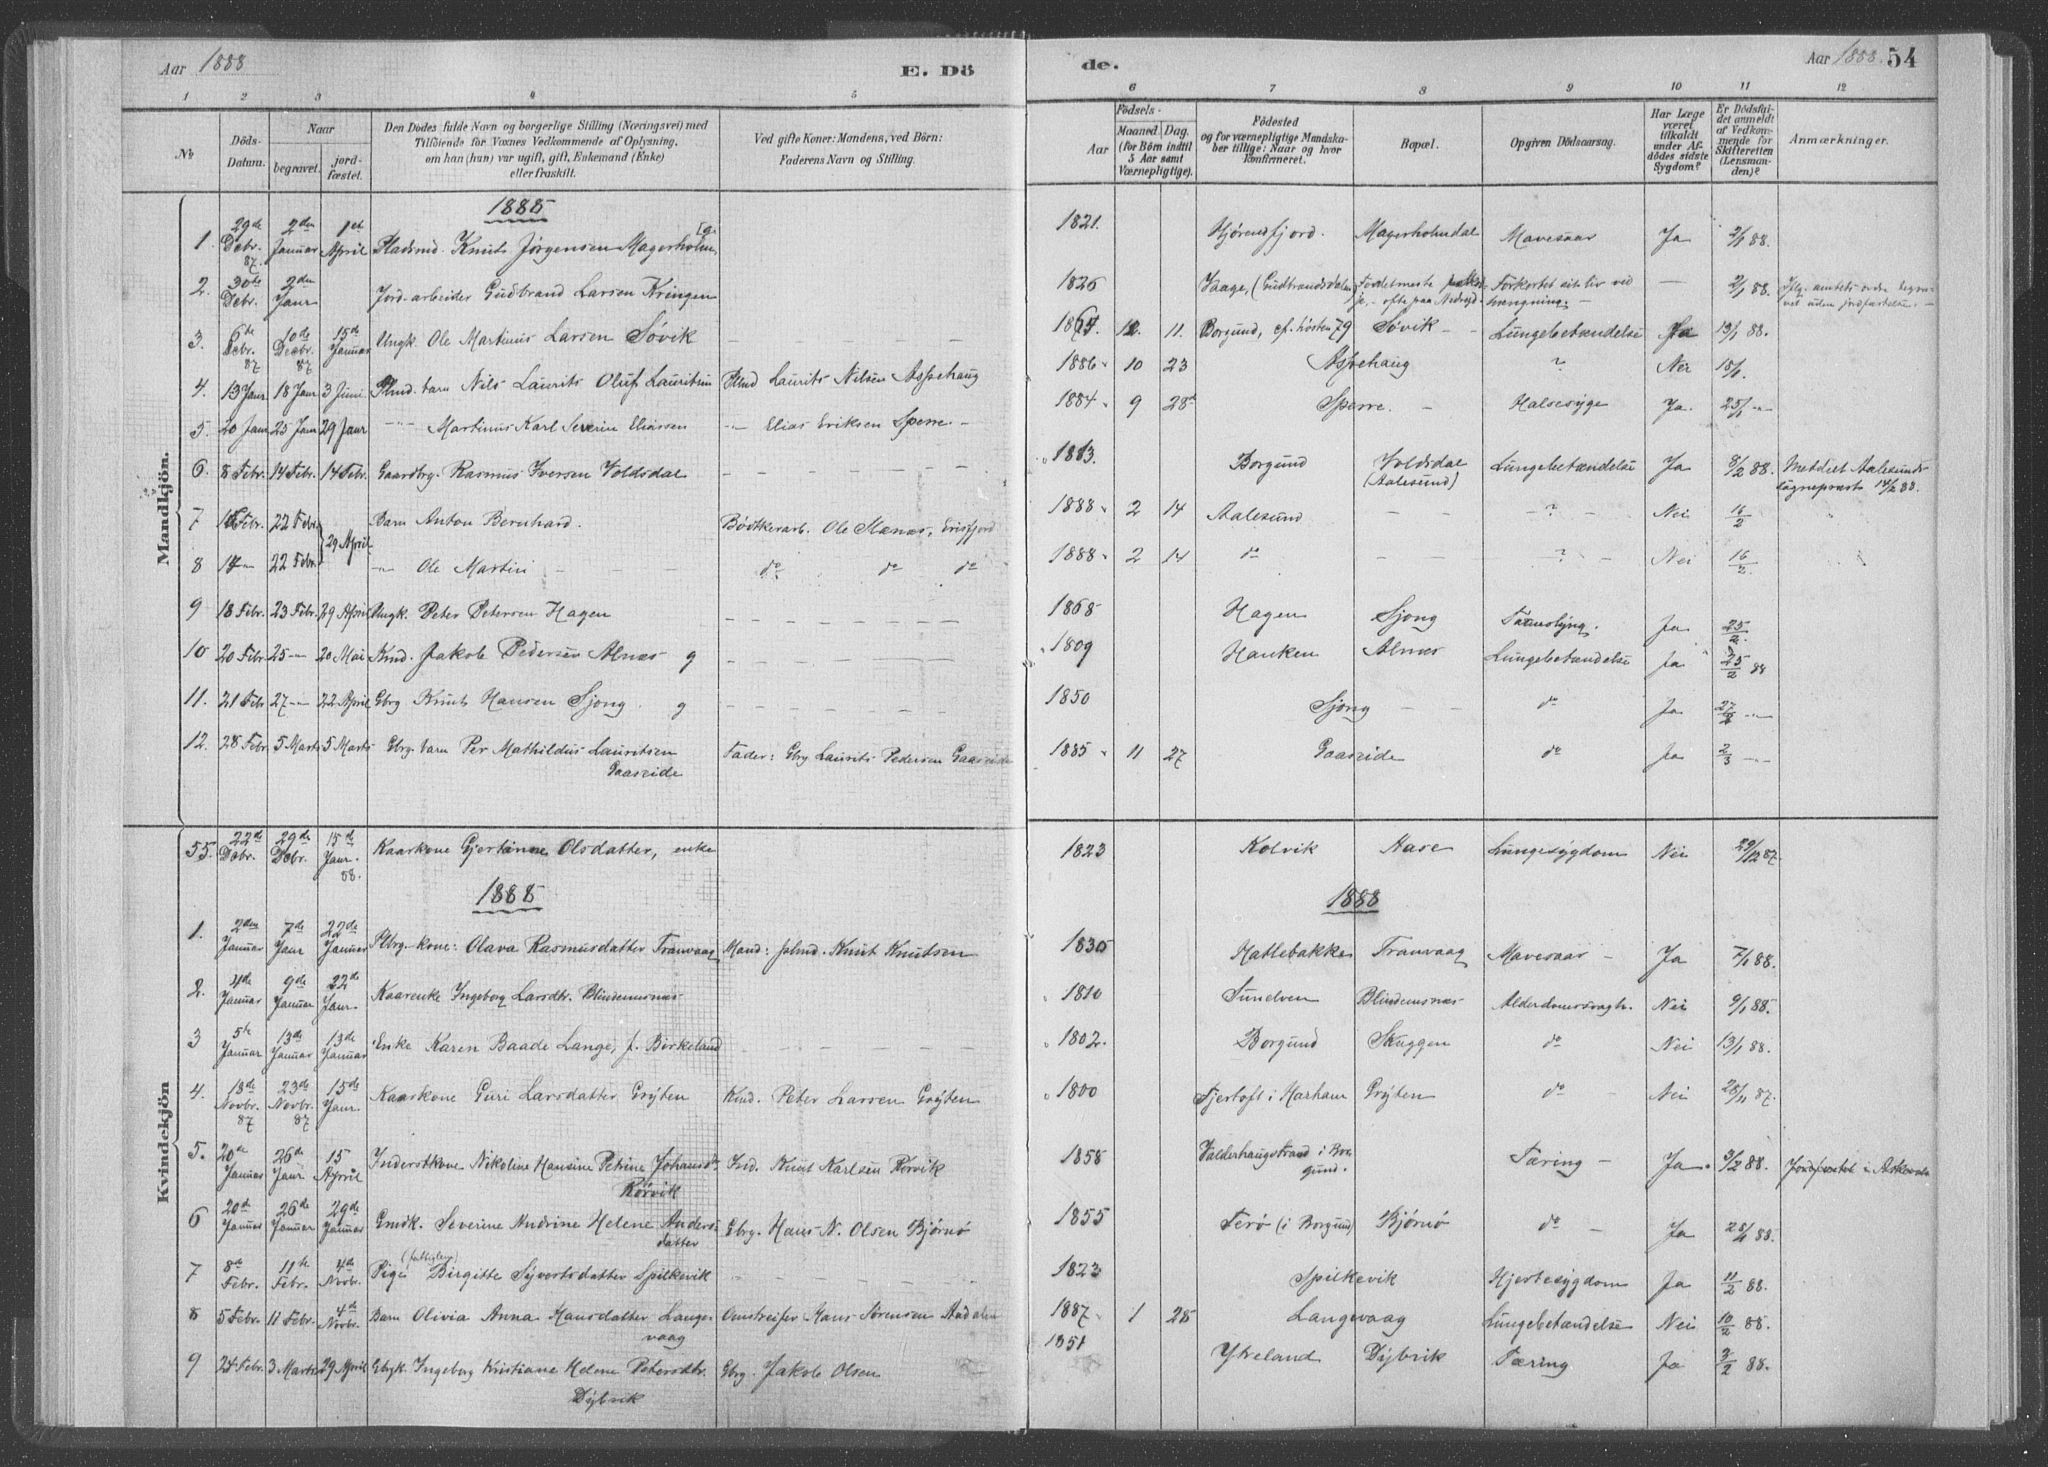 Aar 1888
E. Dö
de.
Aar 1888. 54
1 2 3 4 5 6 7 8 9 10 11 12
No
Döds-Datum.
Naar
begravet. jord-fæstet.
Den Dödes fulde Navn og borgerlige Stilling (Næringsvei) med
Tilföiende for Voxnes Vedkommende af Oplysning,
om han (hun) var ugift, gift, Enkemand (Enke)
eller fraskilt.
Ved gifte Koner: Mandens, ved Börn:
Faderens Navn og Stilling.
Födsels-
Aar
Maaned. Dag.
(for Börn indtil
5 Aar samt
Værnepligtige).
Födested
og for værnepligtige Mandska-
ber tillige: Naar og hvor
konfirmeret.
Bopæl.
Opgiven Dödsaarsag.
Har Læge
været
tilkaldt
under Af-
dödes sidste
Sygdom?
Er Dödsfal-
det anmeldt
af Vedkom-
mende for
Skifteretten
(Lensman-
den)?
Anmærkninger.
Mandkjön.
1888
1. 29de Debr. 87. 2den Januar 1st April Pladsmd. Knut Jørgensen Magerholm 1821. Hjørendfjord. Magerholmdal Mavesaar Ja 2/1 88.
2. 30te Debr. 2den Janr Jord-arbeider Gudbrand Larsen Kringen 1826 Vaage, (Gudbrandsdalen Forkortet sit liv ved hængning. — 2/1 88.
3. 6te Decbr. 87 10de Decbr. 87 15de Januar Ungk. Ole Martinus Larsen Søvik 12. 11. Borgund, cf. høsten 79 Søvik Lungebetændelse Ja 13/1 88.
4. 13 Janr 18 Janr 3 Juni Plmd. barn Nils Laurits Oluf Lauritsen Plmd Laurits Nilsen Aspehaug 1886 10 23 Aspehaug ? Nei 18/1.
5. 20 Janr 25 Janr 29 Janr -"- Martinus Karl Severin Eliassen -"- Elias Eriksen Sperre 1884 9 28 Sperre. Halsesyge Ja. 25/1 -"-
6. 8 Febr. 14 Febr. 14 Febr. Gaardbrg. Rasmus Iversen Voldsdal 1813. Borgund Voldsdal (Aalesund) Lungebetændelse Ja 8/2 88. Meddelt Aalesunds sognepræst 14/2 88.
7 22 Febr. 29 April Barn Anton Bernhard. Bödtkerarb. Ole Stenæs, Erisfjord 1888 2 14 Aalesund ? Nei 16/2
8 22 Febr. -"- Ole Martin do do do 1888 2 14 do ? Nei 16/2
9 18 Febr. 23 Febr. 29 April Ungk. Peter Petersen Hagen 1868 Hagen Sjong Ja 25/2
10 20 Febr. 25 -"- 20 Mai Kmd. Jakob Pedersen Alnæs g 1809 Hauken Alnæs Lungebetændelse Ja 25/2 88
11. 21 Febr. 27 -"- 22 April Gbrg Knut Hansen Sjong g 1850 Sjong do Ja 27/2 -"-
12. 28 Febr. 5 Marts 5 Marts Gbrg. barn Per Mathildus Lauritsen Gaaseide Fader: Gbrg Laurits Pedersen Gaaseide 1885 11 27 Gaaseide do Ja 2/3 -"-
Kvindekjön
55. 22de Debr. 29de Debr. 15de Janr. 88. Kaarkone Gjertinne Olsdatter, enke 1823 Kolvik Aase Lungesygdom Nei 29/12 87.
1888 1888
1. 2den Januar 7de Janr 22de Januar Plbrg.-kone: Olava Rasmusdatter Tranvaag Mand: plmd. Knut Knutsen 1830 Hatlebakke Tranvaag Mavesaar Ja 7/1 88.
2. 4de Januar 9de Januar 22de Janr. Kaarenke Ingeborg Larsdtr. Blindemsnæs 1810 Sundven Blindemsnæs Alderdomssvagh. Nei 9/1 88.
3 5te Januar 13de Januar 13de Januar Enke Karen Baade Lange, f. Birkeland 1802. Borgund Skuggen do Nei 13/1 88.
4. 18de Novbr. 87 23de Novbr. 87 15de Janr. Kaarkone Guri Larsdatter Grÿten Kmd. Peter Larsen Grÿten 1800 Fjertoft i Harham Grÿten do Nei 25/11 87.
5. 20de Januar 26de Janr 15 April Inderstkone Nikoline Hansine Petrine Johansdtr Rörvik Ind. Knut Karlsen Rörvik 1858 Valderhaugstrand i Borgund. Tæring Ja. 3/2 88. Jordfæstet i
6 20de Januar 26de Januar 29de Januar Gmdk. Severine Andrine Helene Andersdatter Gbrg. Hans N. Olsen Bjørnø 1855 Terø (i Borgund) Bjørnø do Ja 28/1 88.
7 8de Febr. 11te Febr. 4de Novbr. Pige (fattiglem) Birgitte Syvertsdatter Spilkevik 1823 Spilkevik Hjertesygdom Ja 11/2 88.
8 5 Febr. 11 Febr. 4de Novbr. Barn Olivia Anna Hansdatter Langevaag Omstreifer Hans Sørensen 1887 1 28 Langevaag Lungebetændelse Nei 10/2 88.
9 24 Febr. 3 Marts 29 April Gbrgk. Ingeborg Kristiane Helene Petersdtr. Dÿbvik Gbrg. Jakob Olsen 1851 Ykeland Dÿbvik Tæring Ja 3/2 88.